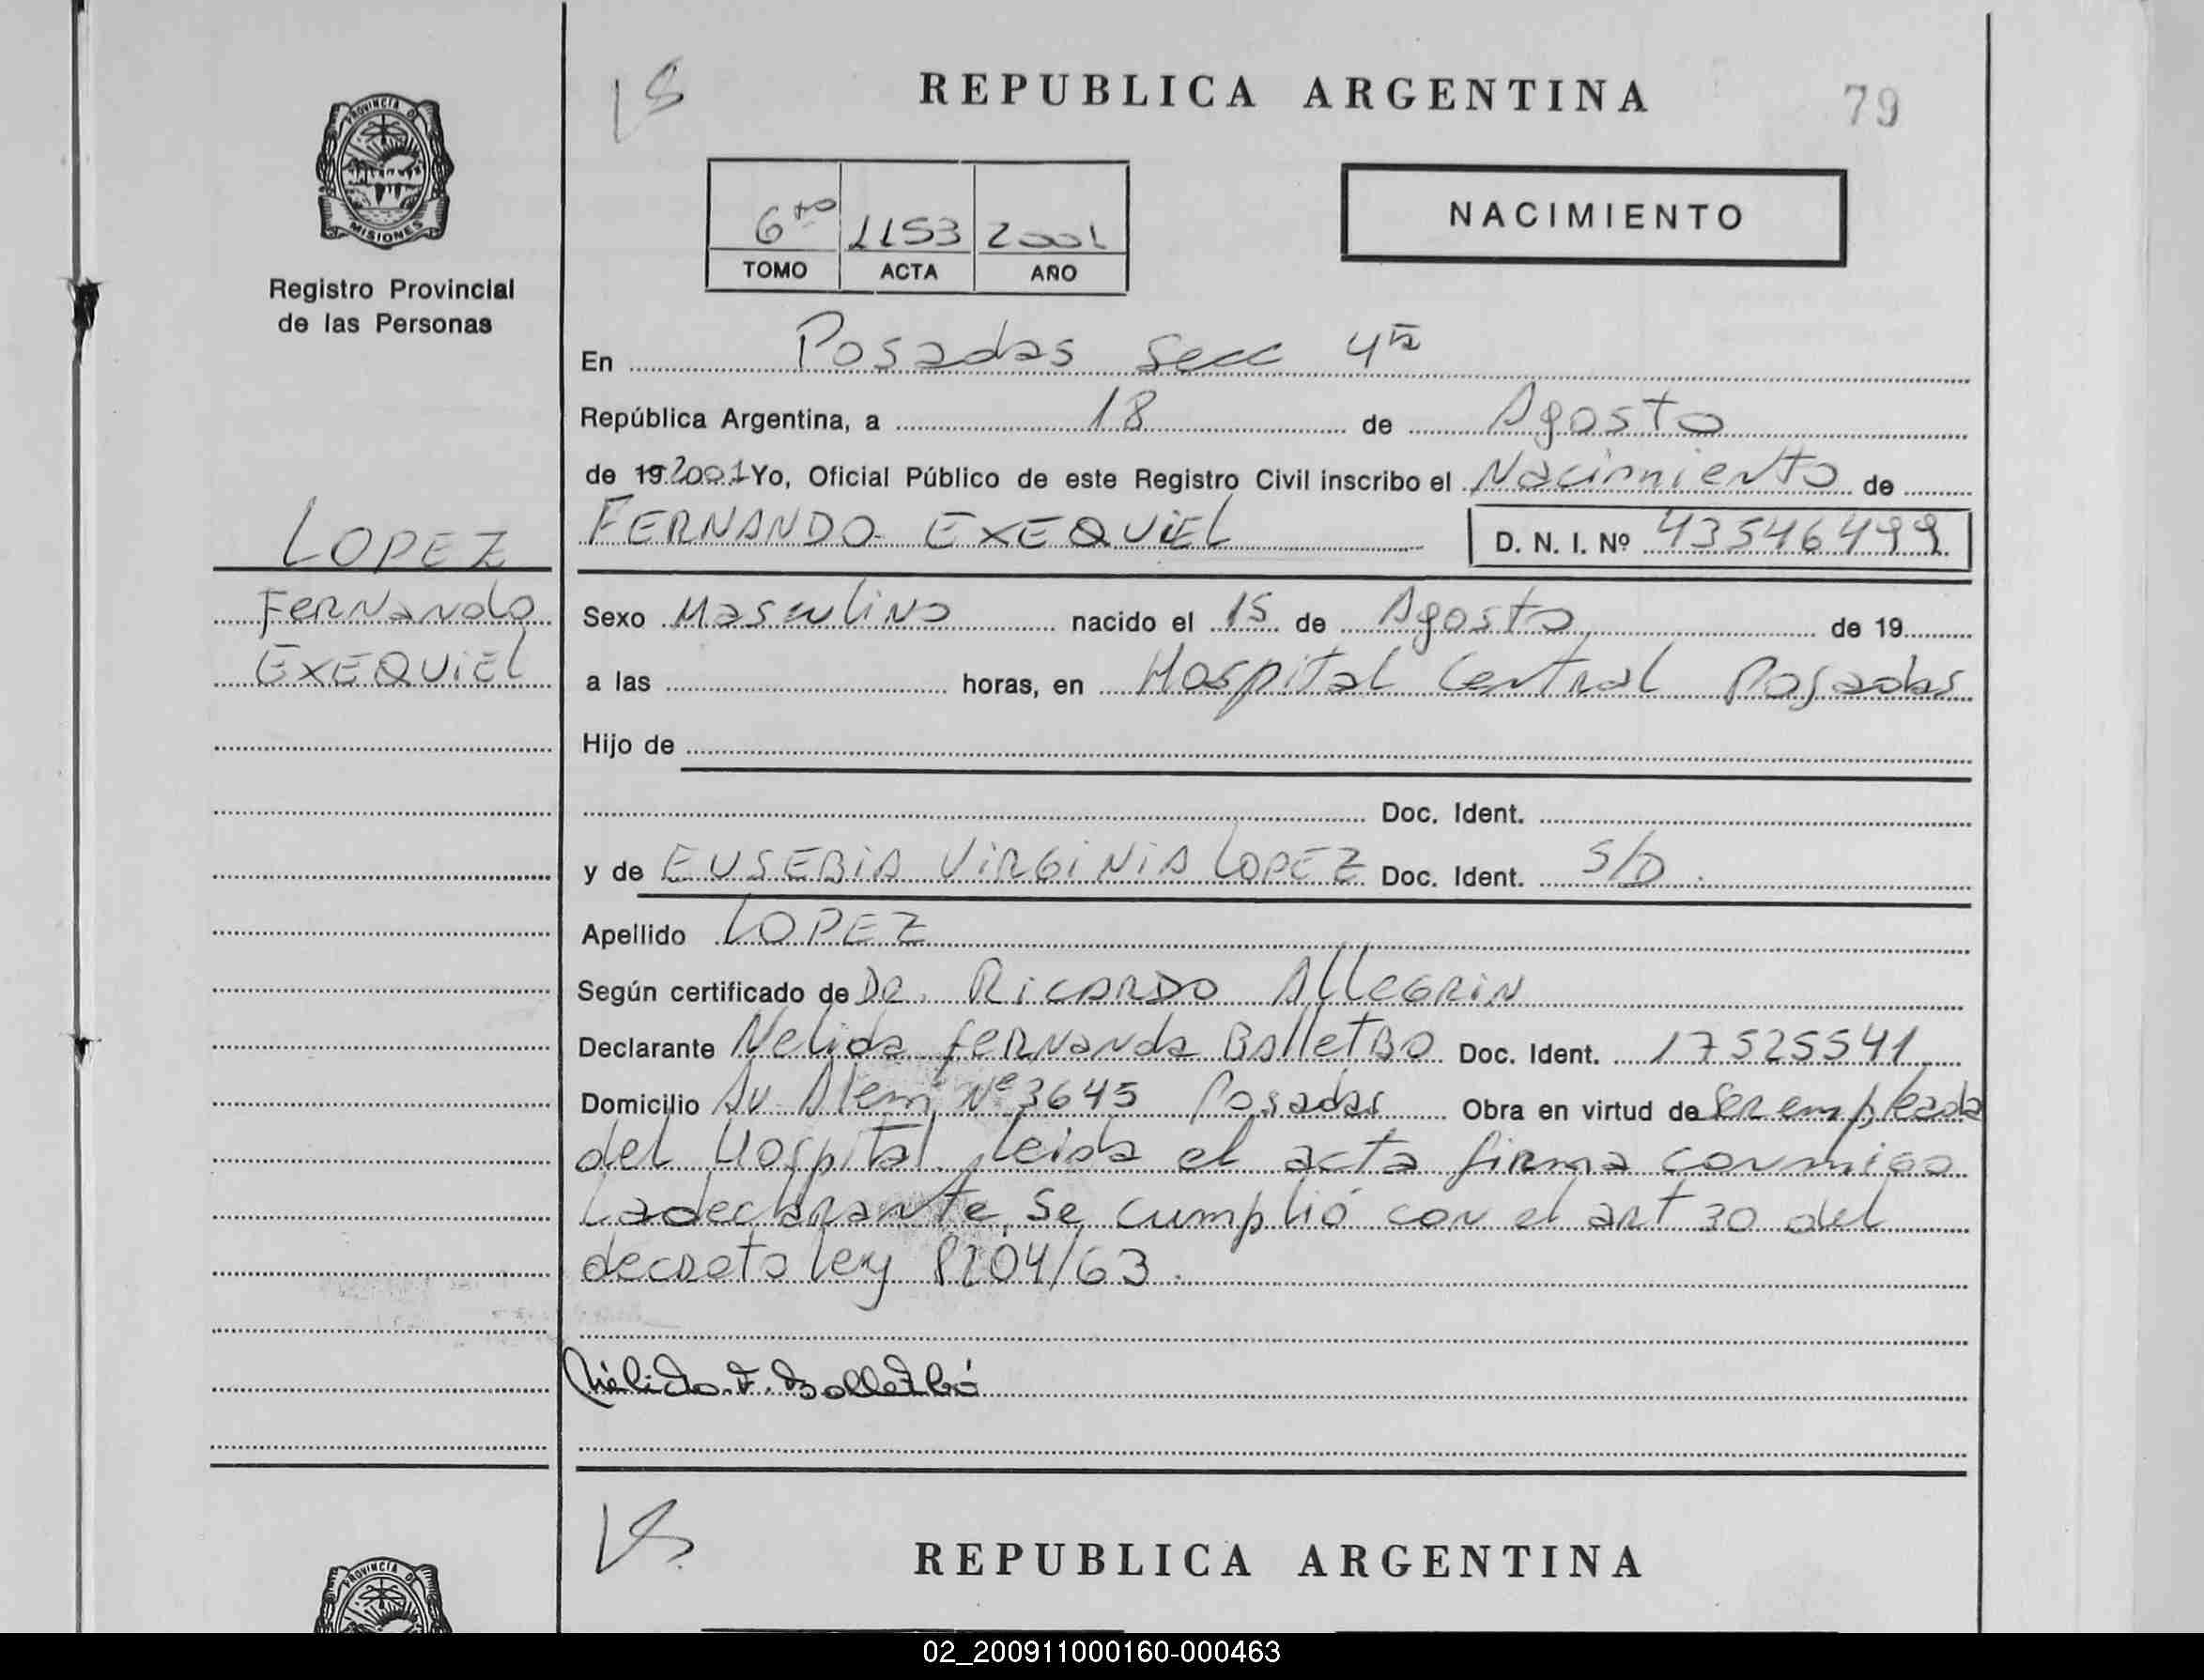 REPUBLICA ARGENTINA
79
PROVINCIA DE
MISIONES
Registro Provincial
de las Personas
6to 1153 2001
TOMO ACTA AÑO
NACIMIENTO
En Posadas Secc 4ta
República Argentina, a 18 de Agosto
de 19 2001 Yo, Oficial Público de este Registro Civil inscribo el Nacimiento de
FERNANDO EXEQUIEL D. N. I. Nº 43546499
LOPEZ
Fernando
EXEQUIEL
Sexo Masculino nacido el 15 de Agosto de 19
a las horas, en Hospital Central Posadas
Hijo de
Doc. Ident.
y de EUSEBIA VIRGINIA LOPEZ Doc. Ident. S/D.
Apellido LOPEZ
Según certificado de DR. RICARDO ALLEGRIN
Declarante Nelida fernanda BALLETBO Doc. Ident. 17525541
Domicilio Av. Alem Nº 3645 Posadas Obra en virtud de Ser empleada
del Hospital leida el acta firma conmigo
La declarante, Se cumplió con el art 30 del
decreto ley 8204/63.
Nélida F. Balletbó
REPUBLICA ARGENTINA
PROVINCIA DE
02_200911000160-000463